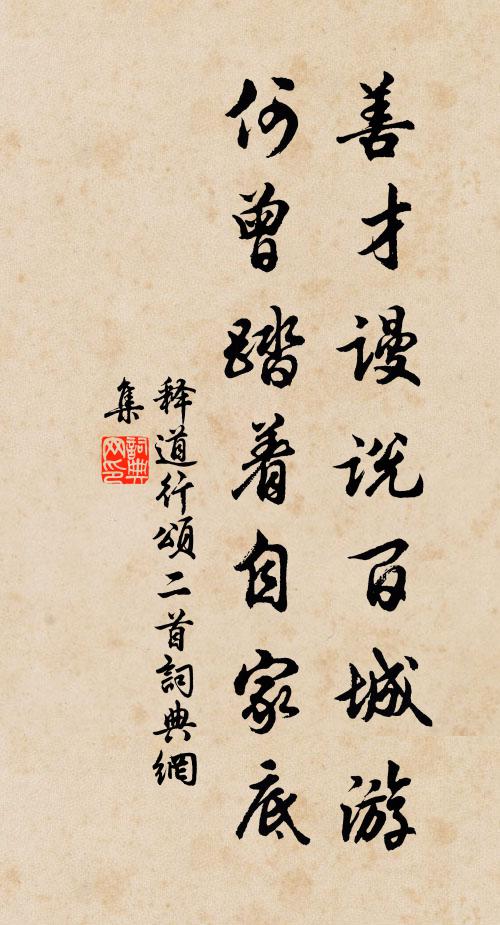 善才谩说百城游
何曾踏着自家底
释道行頌二首詞典網
集
詞典
网印